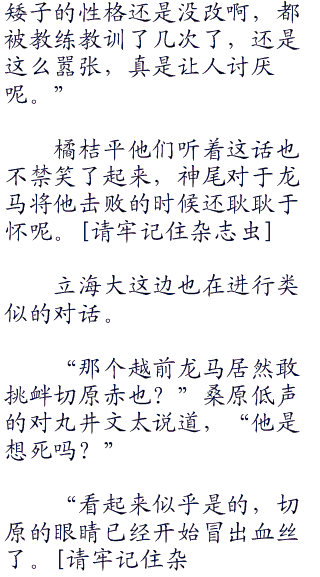 矮子的性格还是没改啊，都
被教练教训了几次了，还是
这么嚣张，真是让人讨厌
呢。”
橘桔平他们听着这话也
不禁笑了起来，神尾对于龙
马将他击败的时候还耿耿于
怀呢。[请牢记住杂志虫]
立海大这边也在进行类
似的对话。
“那个越前龙马居然敢
挑衅切原赤也？”桑原低声
的对丸井文太说道，“他是
想死吗？”
“看起来似乎是的，切
原的眼睛已经开始冒出血丝
了。[请牢记住杂